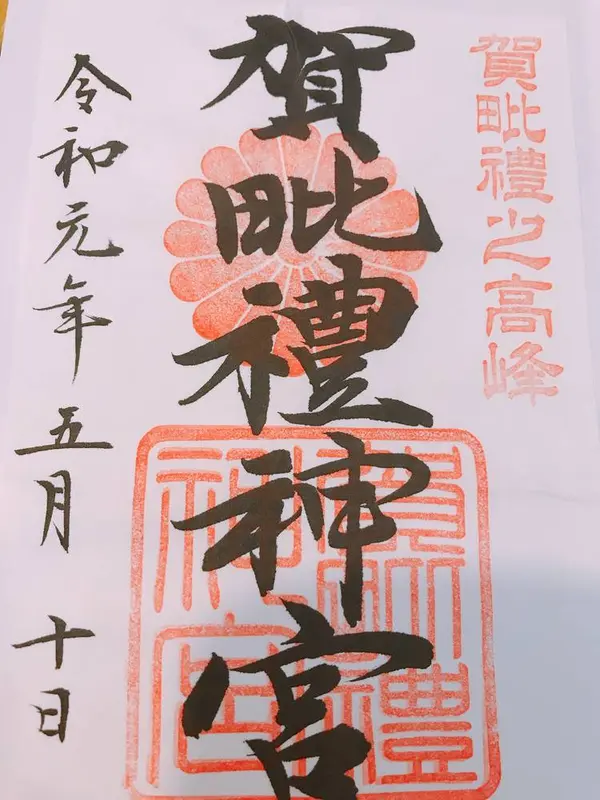 賀毗禮之高峰
賀毗禮神宮
賀毗禮神宮
令和元年五月十日